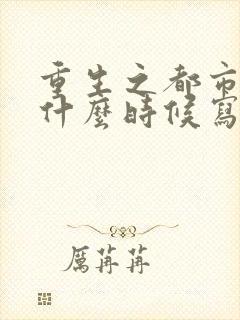 重生之都市
什麼時候寫
厲苒苒